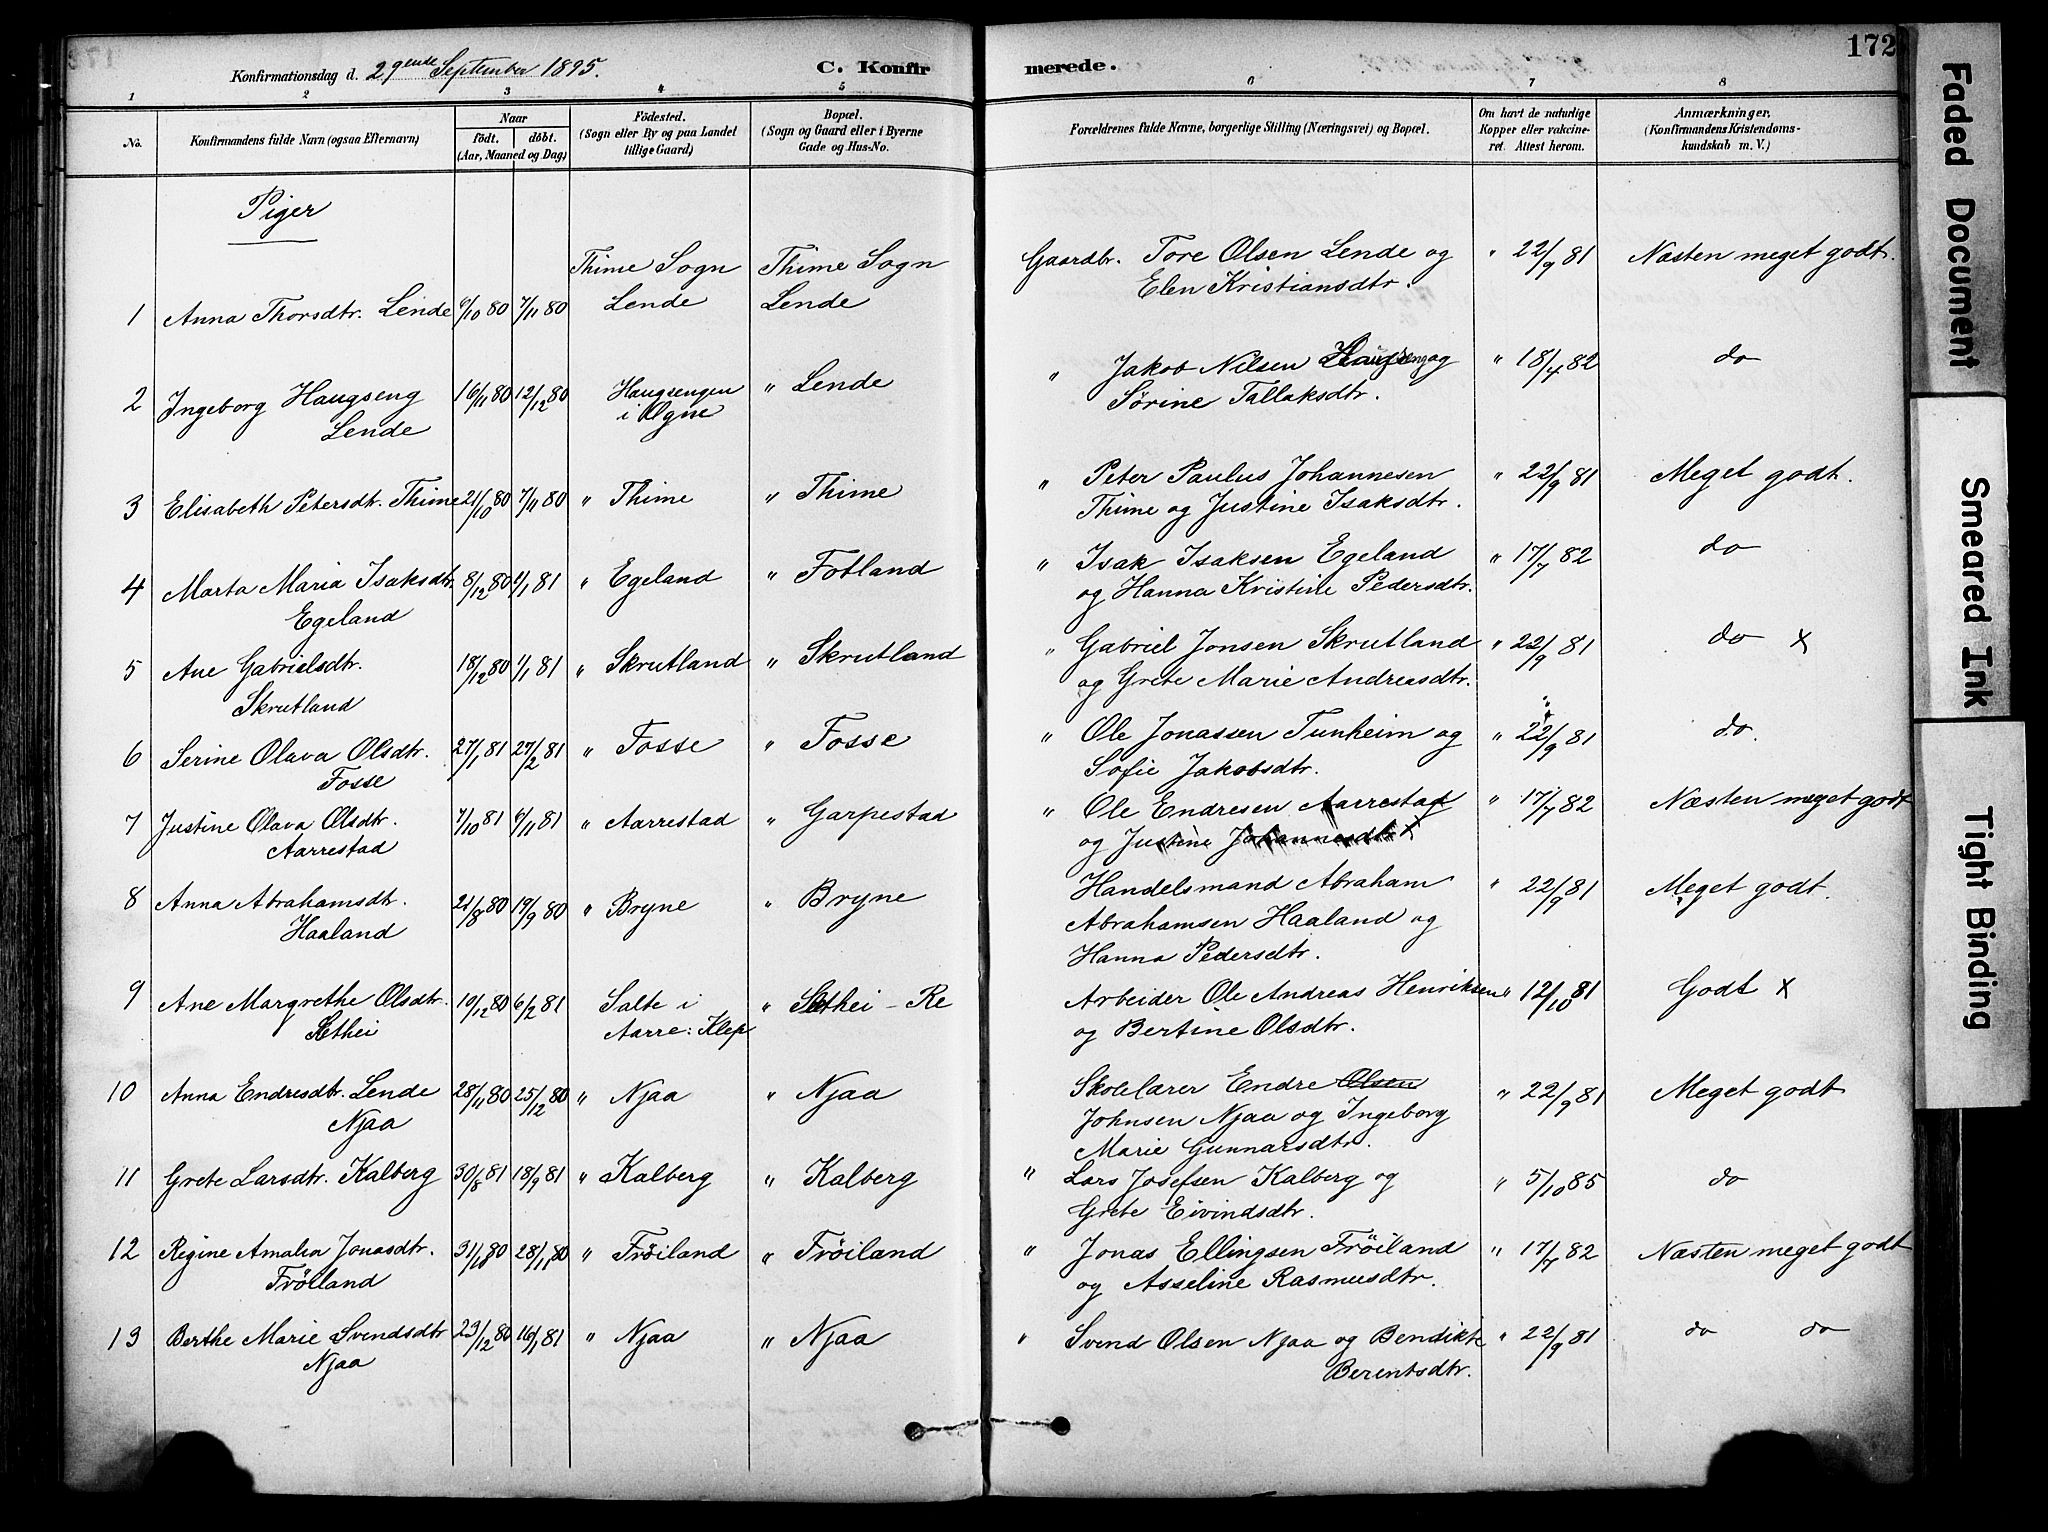 Konfirmationsdag d. 29ende September 1895. C. Konfirmerede. 172
1 2 3 4 5 6 7 8
No. Konfirmandens fulde Navn (ogsaa Efternavn) Naar födt. döbt. (Aar, Maaned og Dag) Födested. (Sogn eller By og paa Landet tillige Gaard) Bopæl. (Sogn og Gaard eller i Byerne Gade og Hus-No. Forældrenes fulde Navne, borgerlige Stilling (Næringsvei) og Bopæl. Om havt de naturlige Kopper eller vakcineret. Attest herom. Anmærkninger. (Konfirmandens Kristendomskundskab m. V.)
Piger
Thime Sogn Thime Sogn Gaardbr. Tore Olsen Lende og " 22/9 81 Næsten meget godt.
1 Anna Thorsdtr. Lende 6/10 80 7/11 80 Lende Lende Elen Kristiansdtr.
2 Ingeborg Haugseng 16/11 80 12/12 80 Haugsengen " Lende " Jakob Nilsen Haugseng og " 18/4 82 do
Lende i Ogne Sörine Tallaksdtr.
3 Elisabeth Petersdtr. Thime 21/10 80 7/11 80 " Thime " Thime " Peter Paulus Johannesen " 22/9 81 Meget godt.
Thime og Justine Isaksdtr.
4 Marta Maria Isaksdtr. 8/12 80 2/1 81 " Egeland " Fotland " Isak Isaksen Egeland " 17/7 82 do
Egeland og Hanna Kristine Pedersdtr.
5 Ane Gabrielsdtr. 18/12 80 1/1 81 " Skrutland " Skrutland " Gabriel Jonsen Skrutland " 22/9 81 do x
Skrutland og Grete Marie Andreasdtr.
6 Serine Olava Olsdtr. 27/1 81 27/2 81 " Fosse " Fosse " Ole Jonassen Tunheim og " 22/9 81 do.
Fosse Sofie Jakobsdtr.
7 Justine Olava Olsdtr. 7/10 81 6/11 81 " Aarrestad " Garpestad " Ole Endresen Aarrestad " 17/7 82 Næsten meget godt
Aarrestad og Justine Johannesdtr x
8 Anna Abrahamsdtr. 21/8 80 19/9 80 " Bryne " Bryne Handelsmand Abraham " 22/9 81 Meget godt.
Haaland Abrahamsen Haaland og
Hanna Pedersdtr.
9 Ane Margrethe Olsdtr. 10/12 80 6/2 81 Salte i " Sæthei - Re Arbeider Ole Andreas Henriksen " 12/10 81 Godt x
Sæthei Aarre: Klep og Bertine Olsdtr.
10 Anna Endresdtr. Lende 28/11 80 25/12 80 " Njaa " Njaa Skolelærer Endre Olsen " 22/9 81 Meget godt
Njaa Johnsen Njaa og Ingeborg
Marie Gunnarsdtr.
11 Grete Larsdtr. Kalberg 30/8 81 18/9 81 " Kalberg " Kalberg " Lars Josefsen Kalberg og " 5/10 85 do
Grete Eivindsdtr.
12 Regine Amalia Jonasdtr. 31/10 80 28/11 80 " Fröiland " Fröiland " Jonas Ellingsen Fröiland " 17/7 82 Næsten meget godt
Fröiland og Asseline Rasmusdtr.
13 Berthe Marie Svendsdtr 23/12 80 16/1 81 " Njaa " Njaa " Svend Olsen Njaa og Bendikte " 22/9 81 do do
Njaa Berentsdtr.
Faded Document
Smeared Ink
Tight Binding